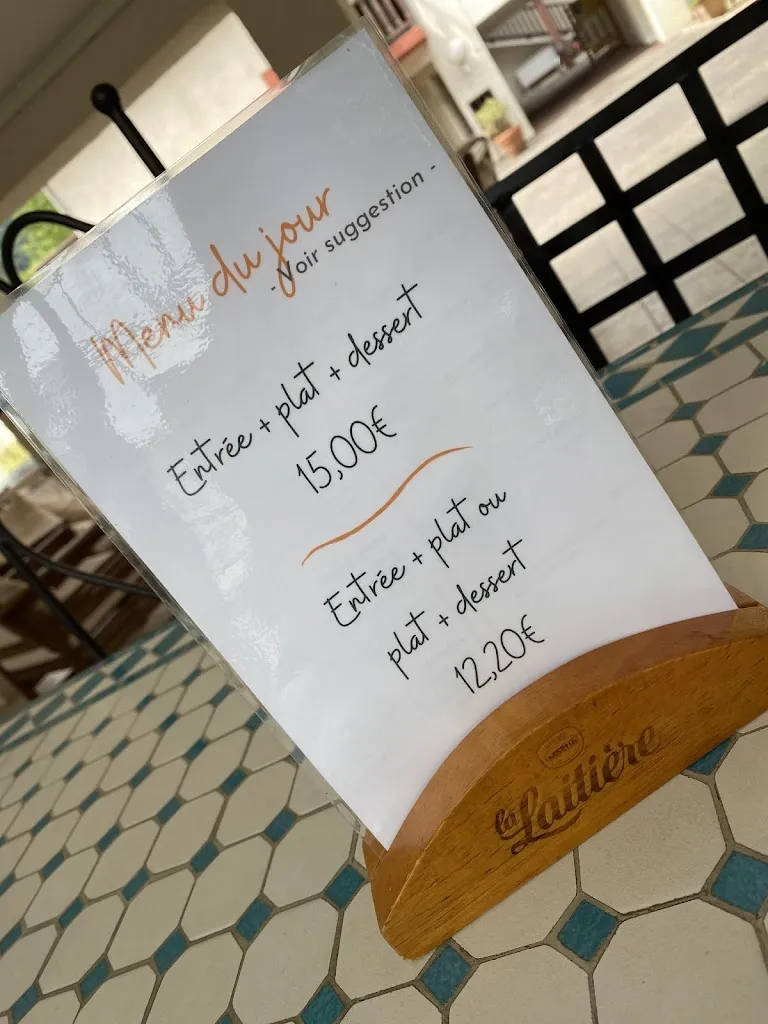 Menu du jour
- Voir suggestion -
Entrée + plat + dessert
15,00€
Entrée + plat ou
plat + dessert
12,20€
la Laitière